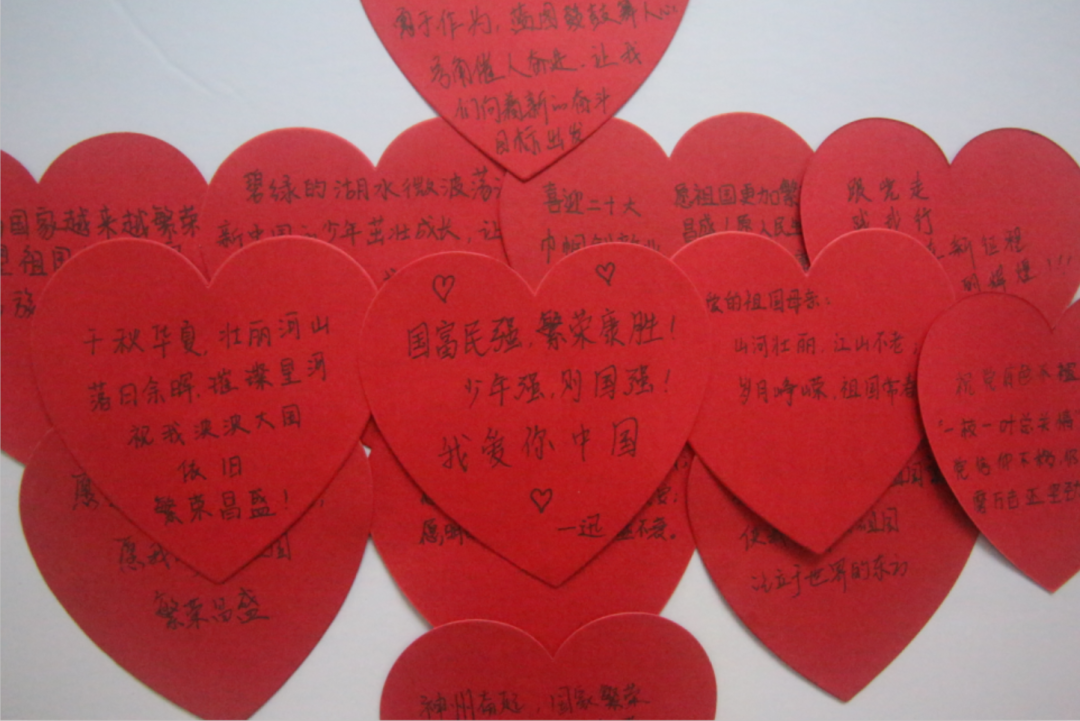 勇于作为,蓝图鼓舞人心
号角催人奋进,让我
们向着新的奋斗
目标出发
国家越来越繁荣
祖国
碧绿的湖水微波荡
新中国的少年茁壮成长,让
喜迎二十大
巾帼
愿祖国更加繁
昌盛!愿人民
跟党走
新征程
的辉煌!!!
千秋华夏,壮丽河山
落日余晖,璀璨星河
祝我泱泱大国
依旧
繁荣昌盛!
国富民强,繁荣康胜!
少年强,则国强!
我爱你中国
一迅
的祖国母亲:
山河壮丽,江山不老;
岁月峥嵘,祖国常春
祝党
"一枝一叶总关情
党信仰不
愿
愿我
国
繁荣昌盛
愿
不变。
祖国
屹立于世界的东方
神州奋起,国家繁荣